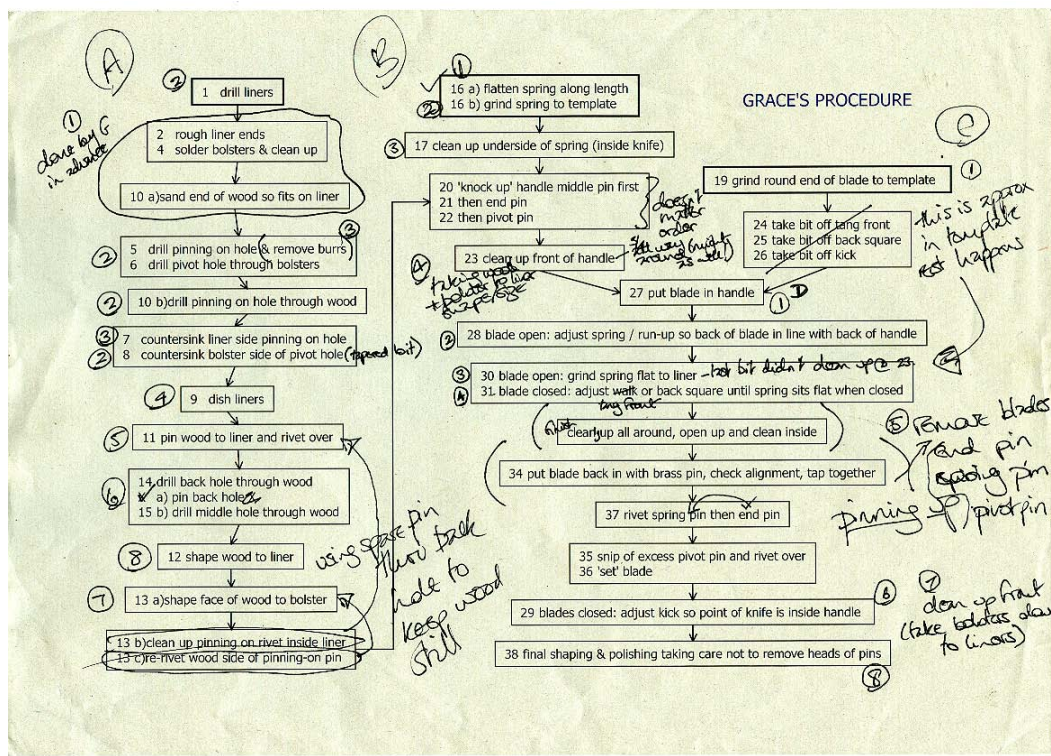 A
② 1 drill liners
① done by G in advance
2 rough liner ends
4 solder bolsters & clean up
10 a)sand end of wood so fits on liner
③
② 5 drill pinning on hole (& remove burrs)
6 drill pivot hole through bolsters
② 10 b)drill pinning on hole through wood
③ 7 countersink liner side pinning on hole
② 8 countersink bolster side of pivot hole (tapered bit)
④ 9 dish liners
⑤ 11 pin wood to liner and rivet over
⑥ 14 drill back hole through wood
a) pin back hole
15 b) drill middle hole through wood
⑧ 12 shape wood to liner
⑦ 13 a)shape face of wood to bolster
13 b)clean up pinning on rivet inside liner
13 c)re-rivet wood side of pinning-on pin
using spare pin
thro back
hole to
keep wood
still
B
① 16 a) flatten spring along length
② 16 b) grind spring to template
③ 17 clean up underside of spring (inside knife)
20 'knock up' handle middle pin first
21 then end pin
22 then pivot pin
doesn't
matter
order
④ 23 clean up front of handle
taking wood
+ bolster to liner
GRACE'S PROCEDURE
C
① 19 grind round end of blade to template
24 take bit off tang front
25 take bit off back square
26 take bit off kick
this is approx
in template
rest happens
27 put blade in handle
① D
② 28 blade open: adjust spring / run-up so back of blade in line with back of handle
③ 30 blade open: grind spring flat to liner - bit didn't clean up @ 23
④ 31 blade closed: adjust walk or back square until spring sits flat when closed
tang front
clean up all around, open up and clean inside
⑤ remove blades
end pin
spring pin
pivot pin
pinning up
34 put blade back in with brass pin, check alignment, tap together
37 rivet spring pin then end pin
35 snip of excess pivot pin and rivet over
36 'set' blade
29 blades closed: adjust kick so point of knife is inside handle ⑥
⑦
clean up front
(take bolsters down
to liners)
38 final shaping & polishing taking care not to remove heads of pins
⑧